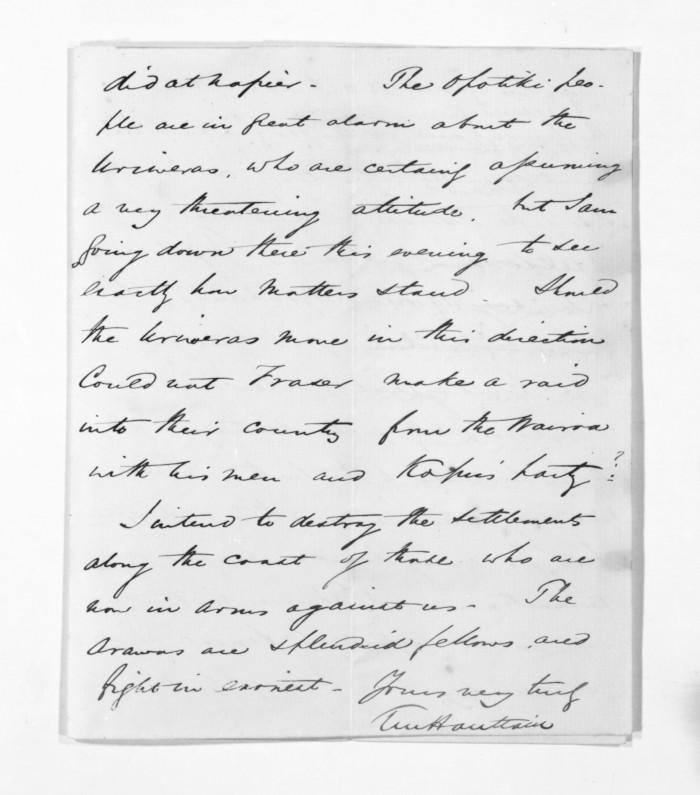 did at Napier - The Opotiki peo-
ple are in great alarm about the
Uriweras, who are certainly assuming
a very threatening attitude, but I am
going down there this evening to see
exactly how matters stand. Should
the Uriweras move in this direction
Could not Fraser make a raid
into their country from the Wairoa
with his men and Kopu's party?
I intend to destroy the settlements
along the coast of those who are
now in arms against us - The
Arawas are splendid fellows and
fight in earnest - Yours very truly
TM Haultain